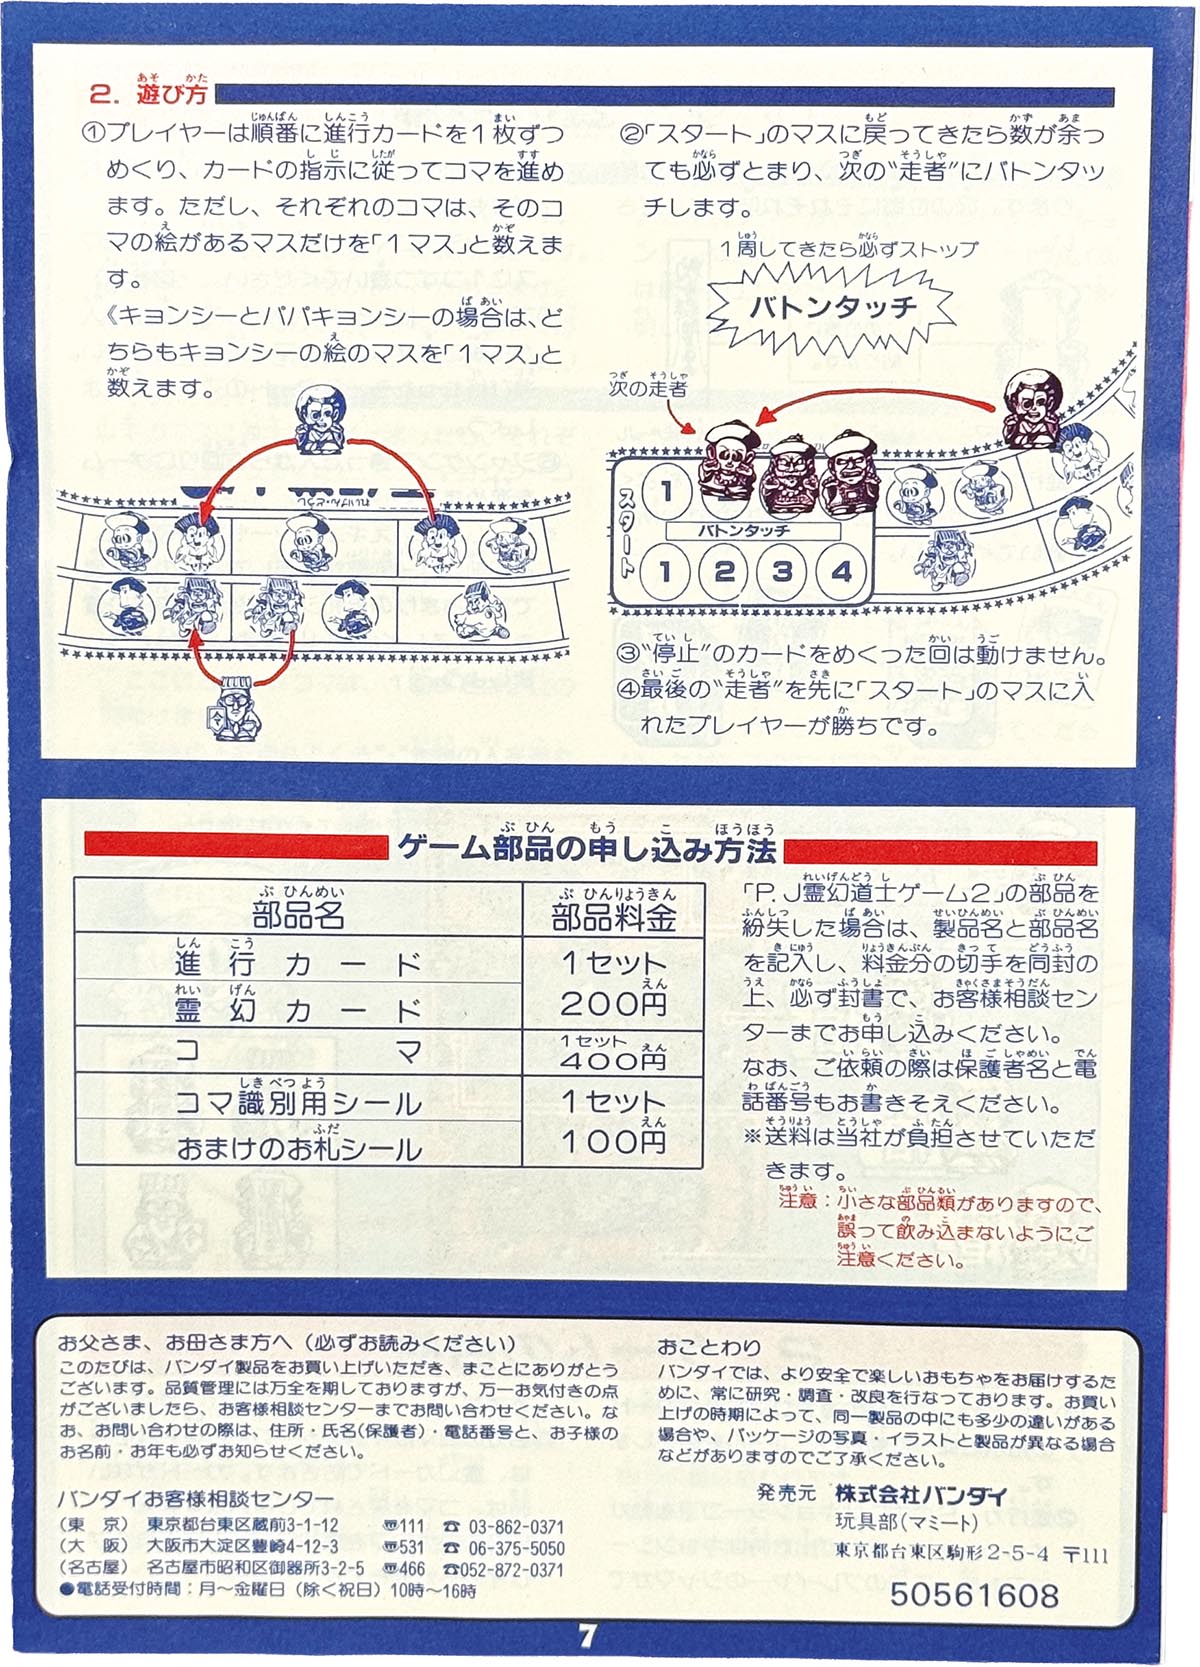 2. 遊び方
①プレイヤーは順番に進行カードを1枚ずつ
めくり、カードの指示に従ってコマを進め
ます。ただし、それぞれのコマは、そのコ
マの絵があるマスだけを「1マス」と数えま
す。
《キョンシーとパパキョンシーの場合は、ど
ちらもキョンシーの絵のマスを「1マス」と
数えます。
②「スタート」のマスに戻ってきたら数が余っ
ても必ずとまり、次の“走者”にバトンタッ
チします。
1周してきたら必ずストップ
バトンタッチ
次の走者
スタート
1
バトンタッチ
1 2 3 4
③“停止”のカードをめくった回は動けません。
④最後の“走者”を先に「スタート」のマスに入
れたプレイヤーが勝ちです。
ゲーム部品の申し込み方法
部品名 部品料金
進行カード
霊幻カード
1セット
200円
コマ
1セット
400円
コマ識別用シール
おまけのお札シール
1セット
100円
「P.J霊幻道士ゲーム2」の部品を
紛失した場合は、製品名と部品名
を記入し、料金分の切手を同封の
上、必ず封書で、お客様相談セン
ターまでお申し込みください。
なお、ご依頼の際は保護者名と電
話番号もお書きそえください。
※送料は当社が負担させていただ
きます。
注意：小さな部品類がありますので、
誤って飲み込まないようにご
注意ください。
お父さま、お母さま方へ（必ずお読みください）
このたびは、バンダイ製品をお買い上げいただき、まことにありがとう
ございます。品質管理には万全を期しておりますが、万一お気付きの点
がございましたら、お客様相談センターまでお問い合わせください。な
お、お問い合わせの際は、住所・氏名(保護者)・電話番号と、お子様の
お名前・お年も必ずお知らせください。
バンダイお客様相談センター
(東　京)　東京都台東区蔵前3-1-12　〠111　☎ 03-862-0371
(大　阪)　大阪市大淀区豊崎4-12-3　〠531　☎ 06-375-5050
(名古屋)　名古屋市昭和区御器所3-2-5　〠466　☎052-872-0371
●電話受付時間：月～金曜日（除く祝日）10時～16時
おことわり
バンダイでは、より安全で楽しいおもちゃをお届けするた
めに、常に研究・調査・改良を行なっております。お買い
上げの時期によって、同一製品の中にも多少の違いがある
場合や、パッケージの写真・イラストと製品が異なる場合
などがありますのでご了承ください。
発売元　株式会社バンダイ
玩具部(マミート)
東京都台東区駒形2-5-4　〒111
50561608
7